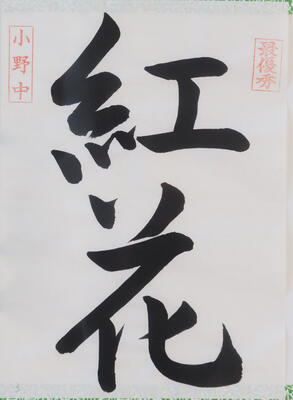 最優秀
紅花
小野中